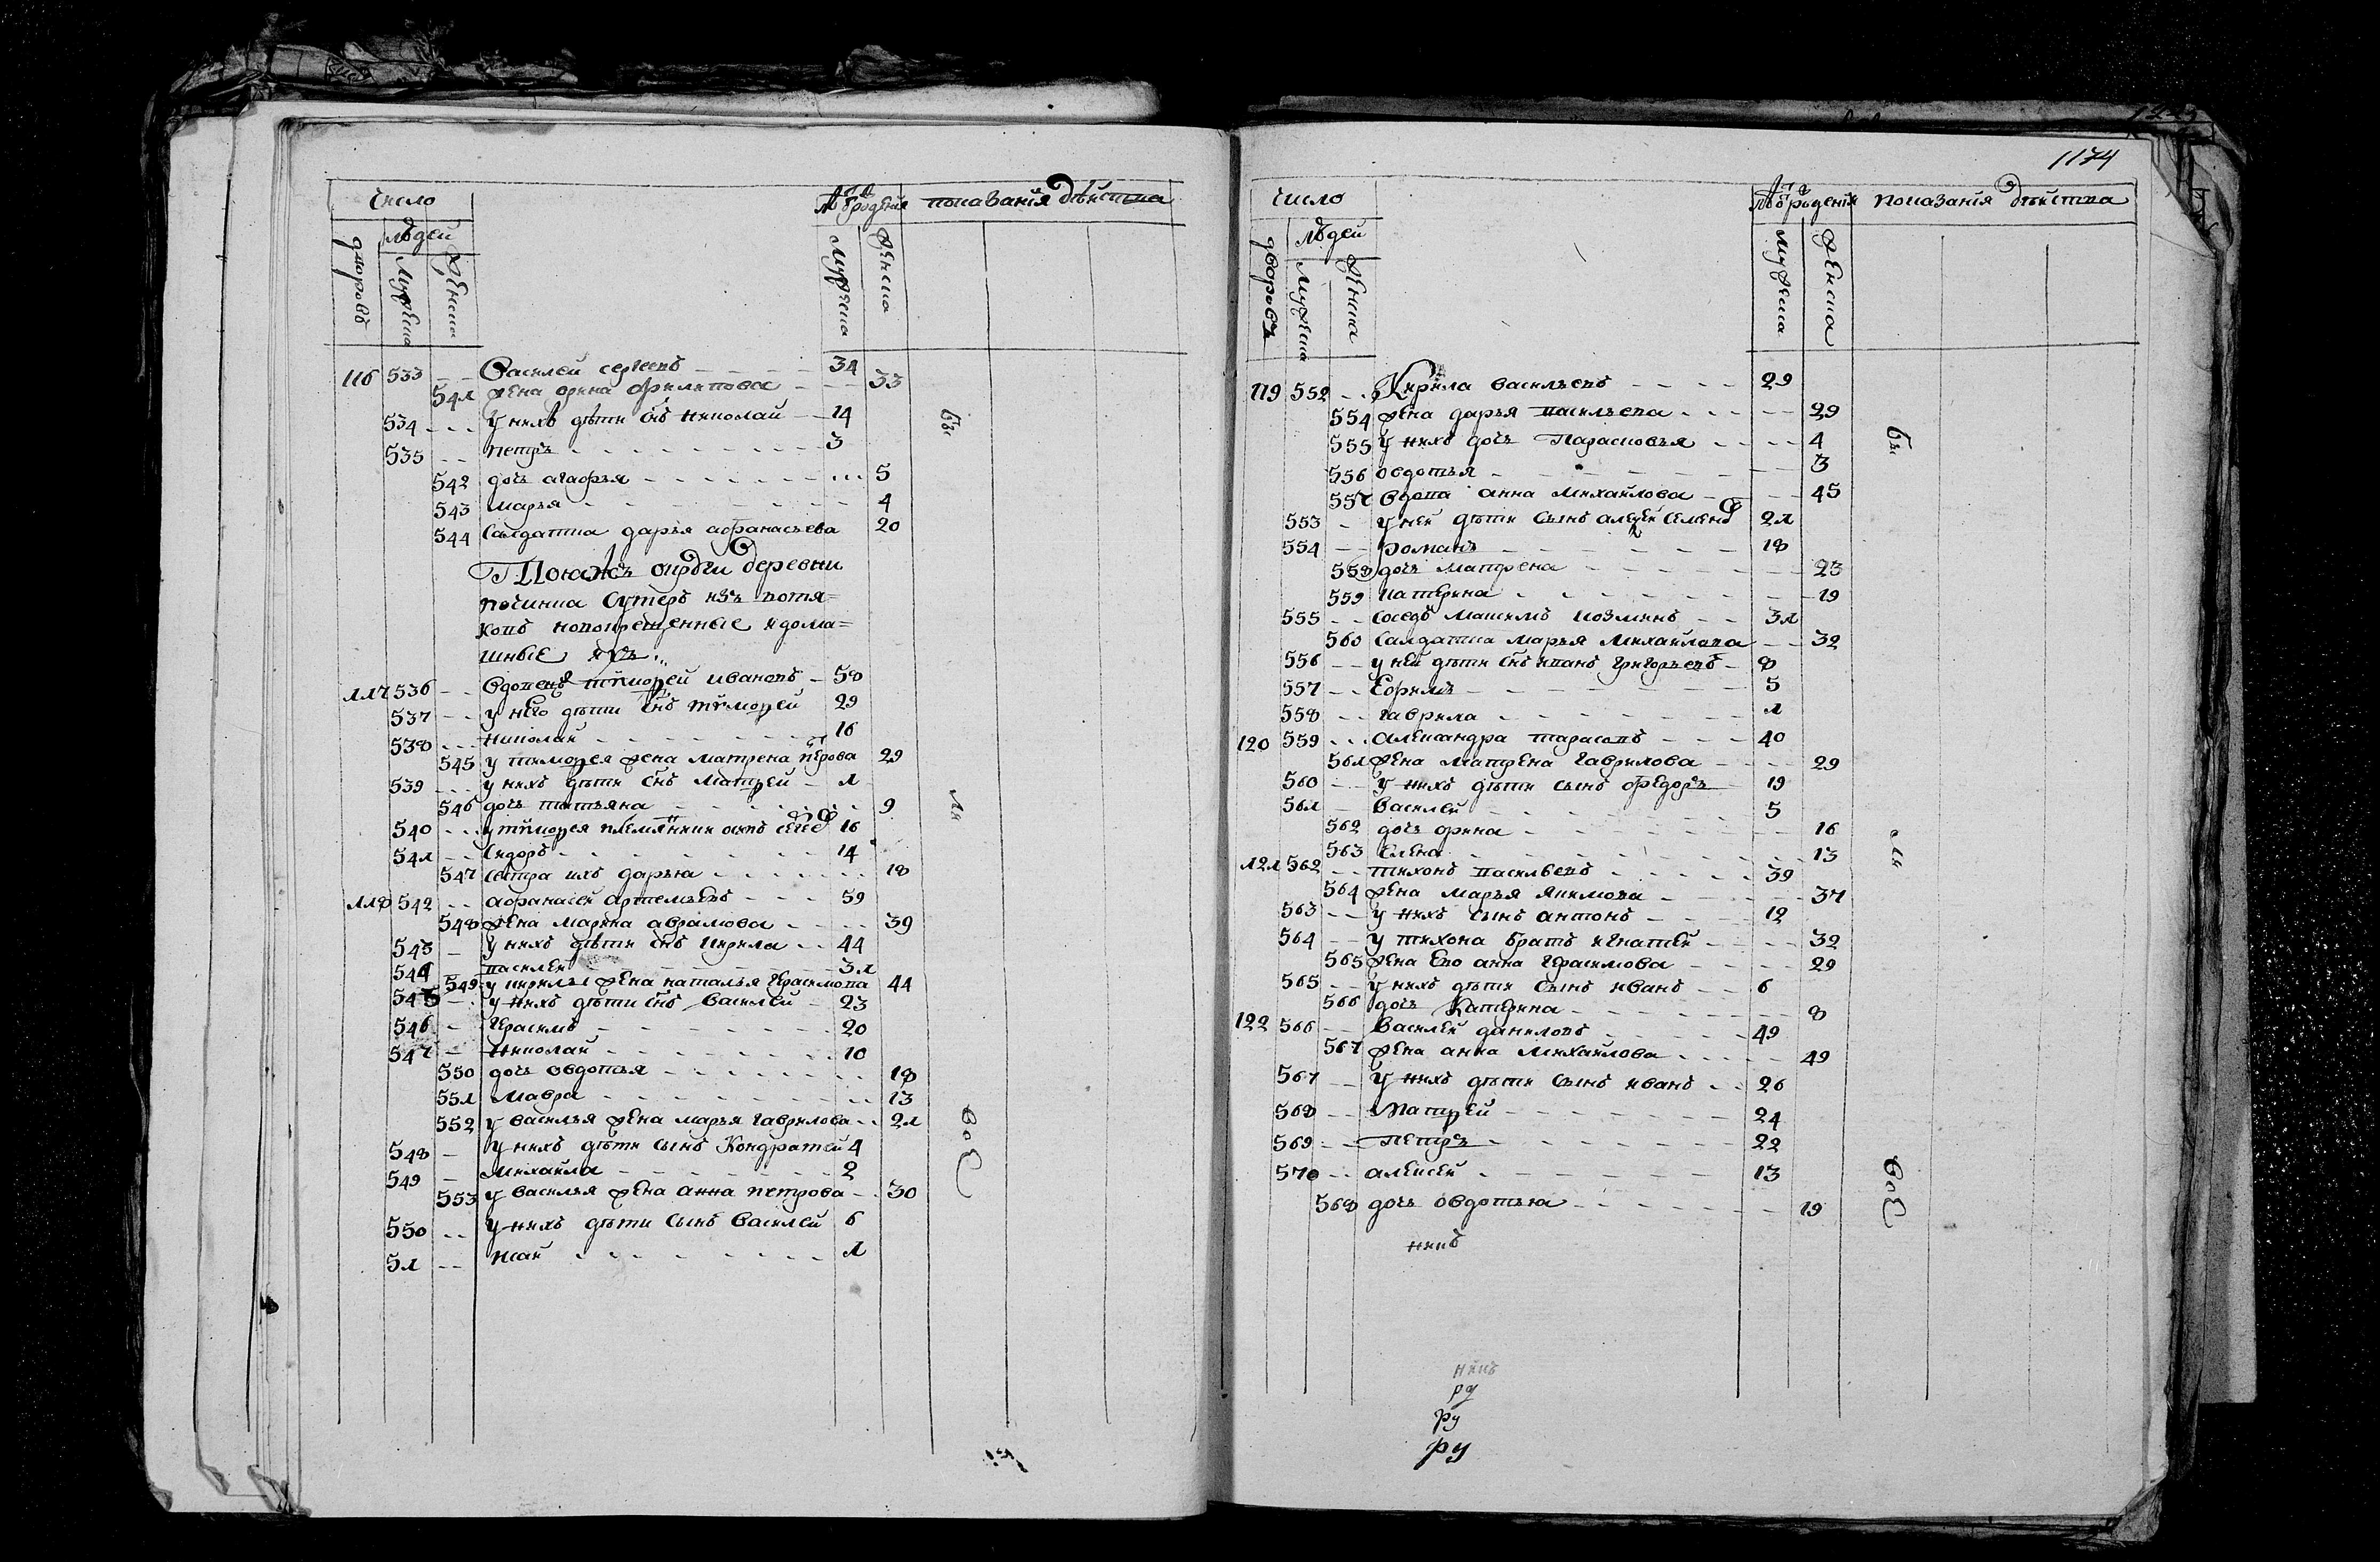 число
людей
дворовъ
мужеска
женска
лѣ от рождения
мужеска
женска
показанія дѣйства
116 533 Василей сергеевъ 34
541 жена орина филипова 33
534 у нихъ дѣти снъ николай 14
535 петръ 3
542 дочь агафья 5
543 марья 4
544 Салдатка дарья афанасьева 20
деревни
починка
новокрещенные
117 536 Вдовецъ тимофей ивановъ 58
537 у него дѣти снъ тимофей 29
538 николай 16
545 у тимофея жена матрена 29
539 у нихъ дѣти снъ матфей 1
546 дочь татьяна 9
540 у тимофея племянник 16
541 Сидоръ 14
547 сестра ихъ дарья 18
118 542 афанасей артемьевъ 59
548 жена марина аврамова 39
543 у нихъ дѣти снъ кирила 44
544 василей 31
549 у кирилы жена наталья герасимова 44
545 у нихъ дѣти снъ василей 23
546 герасимъ 20
547 николай 10
550 дочь овдотья 18
551 мавра 13
552 у василья жена марья гаврилова 21
548 у нихъ дѣти сынъ Кондратей 4
549 михайла 2
553 у василья жена анна петрова 30
550 у нихъ дѣти сынъ василей 6
51 1
бы
ли
все
1174
число
людей
дворовъ
мужеска
женска
лѣ от рожденія
мужеска
женска
показанія дѣйства
119 552 Кирила васильевъ 29
554 жена дарья васильева 29
555 у нихъ дочь Парасковья 4
556 овдотья 3
557 вдова анна михайлова 45
553 у ней дѣти сынъ алексей семенов 21
554 романъ 18
558 дочь матрена 23
559 катерина 19
555 соседъ максимъ козминъ 31
560 салдатка марья михайлова 32
556 у ней дѣти снъ иванъ григорьевъ 8
557 Ефимъ 5
558 гаврила 1
120 559 александра тарасовъ 40
561 жена матрена гаврилова 29
560 у нихъ дѣти сынъ федоръ 19
561 василей 5
562 дочь орина 16
563 Елена 13
121 562 тихонъ васильевъ 39
564 жена марья якимова 37
563 у нихъ сынъ антонъ 12
564 у тихона братъ игнатей 32
565 жена Ево анна герасимова 29
565 у нихъ дѣти сынъ иванъ 6
566 дочь Катерина 8
122 566 василей даниловъ 49
567 жена анна михайлова 49
567 у нихъ дѣти сынъ иванъ 26
568 Матфей 24
569 петръ 22
570 алексей 13
568 дочь овдотья 19
бы
ли
все
никъ
никъ
ру
ру
ру